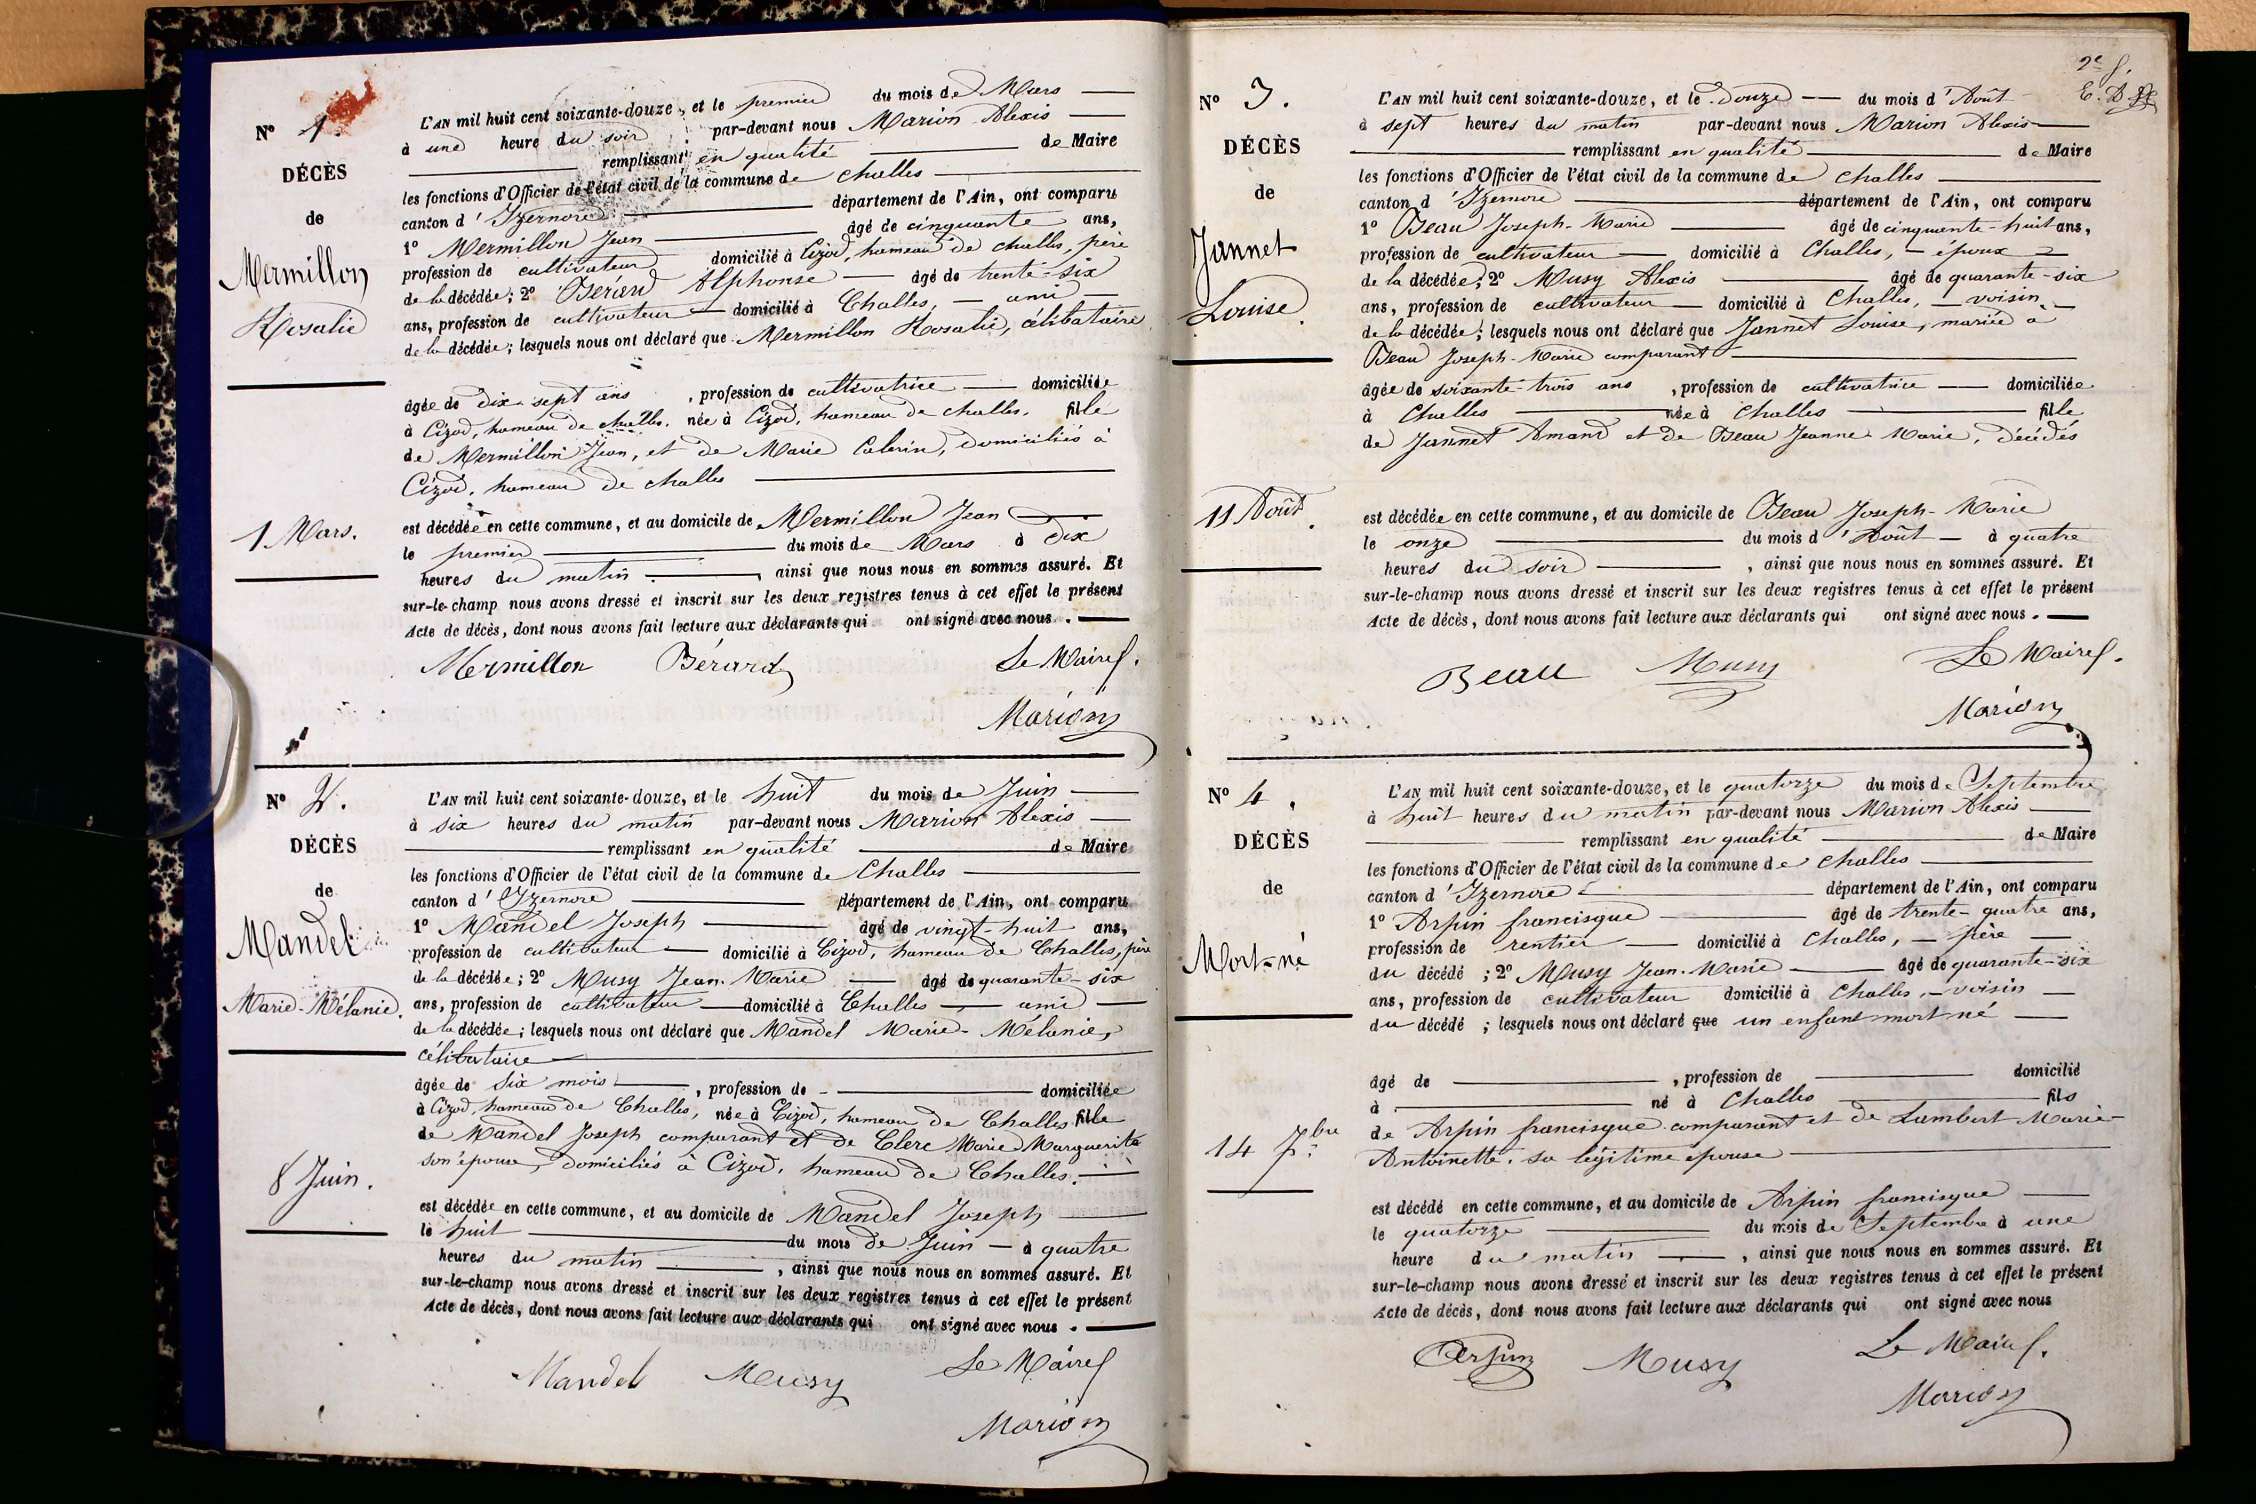 N° 1
DÉCÈS
de
Mermillon
Rosalie
1 Mars.
L'AN mil huit cent soixante-douze, et le premier du mois de Mars
à une heure du soir par-devant nous Marion Alexis
remplissant en qualité de Maire
les fonctions d'Officier de l'état civil de la commune de Challes
canton d'Izernore département de l'Ain, ont comparu
1° Mermillon Jean âgé de cinquante ans,
profession de cultivateur domicilié à Cizod, hameau de challes, père
de la décédée; 2° Bérard Alphonse âgé de trente-six
ans, profession de cultivateur domicilié à Challes, — ami
de la décédée; lesquels nous ont déclaré que Mermillon Rosalie, célibataire
âgée de dix-sept ans, profession de cultivatrice domiciliée
à Cizod, hameau de challes, née à Cizod, hameau de challes. fille
de Mermillon Jean, et de Marie domiciliés à
Cizod, hameau de challes
est décédée en cette commune, et au domicile de Mermillon Jean
le premier du mois de Mars à dix
heures du matin, ainsi que nous nous en sommes assuré. Et
sur-le-champ nous avons dressé et inscrit sur les deux registres tenus à cet effet le présent
Acte de décès, dont nous avons fait lecture aux déclarants qui ont signé avec nous.
Mermillon Bérard Le Maire
Marion
N° 2.
DÉCÈS
de
Mandel
Marie-Mélanie.
8 Juin.
L'AN mil huit cent soixante-douze, et le huit du mois de Juin
à six heures du matin par-devant nous Marion Alexis
remplissant en qualité de Maire
les fonctions d'Officier de l'état civil de la commune de Challes
canton d'Izernore département de l'Ain, ont comparu
1° Mandel Joseph âgé de vingt-huit ans,
profession de cultivateur domicilié à Cizod, hameau de Challes, père
de la décédée; 2° Musy Jean-Marie âgé de quarante-six
ans, profession de cultivateur domicilié à Challes — ami
de la décédée; lesquels nous ont déclaré que Mandel Marie-Mélanie,
célibataire
âgée de six mois, profession de domiciliée
à Cizod, hameau de Challes, née à Cizod, hameau de Challes fille
de Mandel Joseph comparant et de Clerc Marie Marguerite
son épouse, domiciliés à Cizod, hameau de Challes.
est décédée en cette commune, et au domicile de Mandel Joseph
le huit du mois de Juin — à quatre
heures du matin, ainsi que nous nous en sommes assuré. Et
sur-le-champ nous avons dressé et inscrit sur les deux registres tenus à cet effet le présent
Acte de décès, dont nous avons fait lecture aux déclarants qui ont signé avec nous.
Mandel Musy Le Maire
Marion
2e f.
N° 3.
DÉCÈS
de
Jannet
Louise.
11 Août.
L'AN mil huit cent soixante-douze, et le douze du mois d'Août
à sept heures du matin par-devant nous Marion Alexis
remplissant en qualité de Maire
les fonctions d'Officier de l'état civil de la commune de Challes
canton d'Izernore département de l'Ain, ont comparu
1° Beau Joseph-Marie âgé de cinquante-huit ans,
profession de cultivateur domicilié à Challes, — époux
de la décédée; 2° Musy Alexis âgé de quarante-six
ans, profession de cultivateur domicilié à Challes, — voisin.
de la décédée; lesquels nous ont déclaré que Jannet Louise, mariée à
Beau Joseph-Marie comparant
âgée de soixante-trois ans, profession de cultivatrice domiciliée
à Challes née à Challes fille
de Jannet Amand et de Beau Jeanne-Marie, décédés
est décédée en cette commune, et au domicile de Beau Joseph-Marie
le onze du mois d'Août — à quatre
heures du soir, ainsi que nous nous en sommes assuré. Et
sur-le-champ nous avons dressé et inscrit sur les deux registres tenus à cet effet le présent
Acte de décès, dont nous avons fait lecture aux déclarants qui ont signé avec nous.
Beau Musy Le Maire
Marion
N° 4.
DÉCÈS
de
Mort-né
14 7bre
L'AN mil huit cent soixante-douze, et le quatorze du mois de Septembre
à huit heures du matin par-devant nous Marion Alexis
remplissant en qualité de Maire
les fonctions d'Officier de l'état civil de la commune de Challes
canton d'Izernore département de l'Ain, ont comparu
1° Arpin francisque âgé de trente-quatre ans,
profession de rentier domicilié à Challes, — père
du décédé; 2° Musy Jean-Marie âgé de quarante-six
ans, profession de cultivateur domicilié à Challes, — voisin
du décédé; lesquels nous ont déclaré que un enfant mort né
âgé de, profession de domicilié
à né à Challes fils
de Arpin francisque comparant et de Lambert Marie-
Antoinette, sa légitime épouse
est décédé en cette commune, et au domicile de Arpin francisque
le quatorze du mois de Septembre à une
heure du matin, ainsi que nous nous en sommes assuré. Et
sur-le-champ nous avons dressé et inscrit sur les deux registres tenus à cet effet le présent
Acte de décès, dont nous avons fait lecture aux déclarants qui ont signé avec nous
Arpin Musy Le Maire
Marion